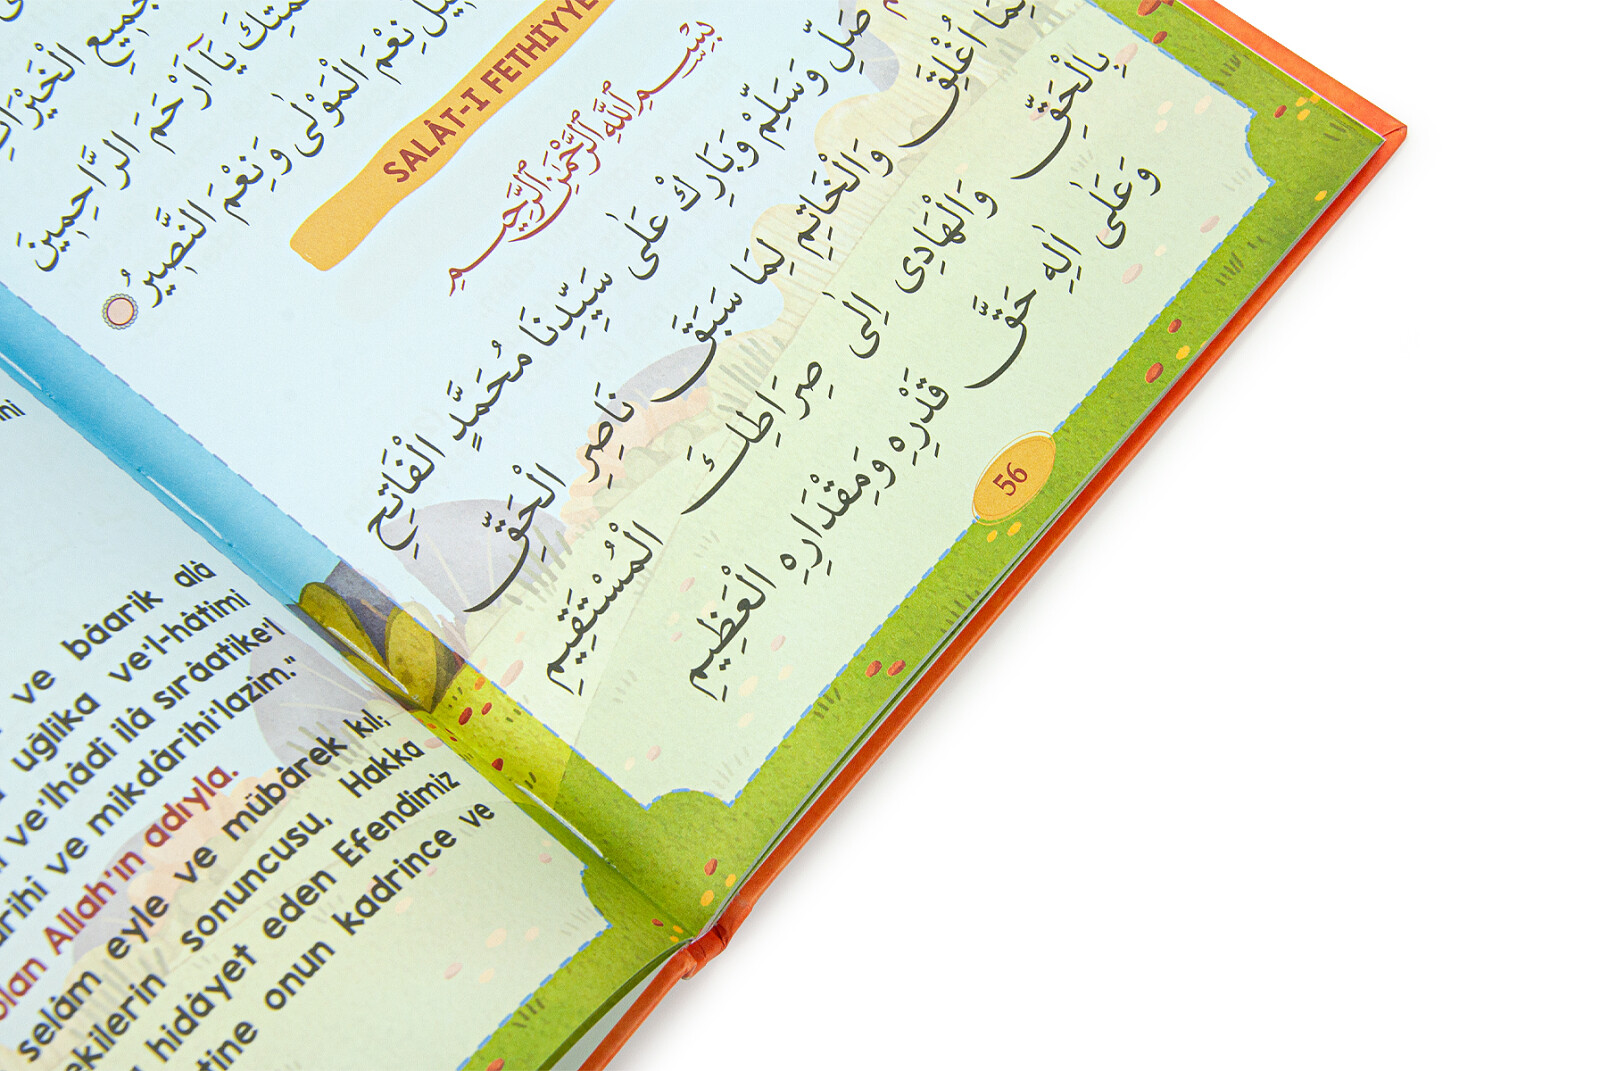 جَمِيعِ الْخَيْرَاتِ
يَآ اَرْحَمَ الرَّاحِمِينَ
نِعْمَ الْمَوْلٰى وَنِعْمَ النَّصِيرُ
SALÂT-I FETHİYYE
بِسْمِ اللّٰهِ الرَّحْمٰنِ الرَّحِيمِ
صَلِّ وَسَلِّمْ وَبَارِكْ عَلٰى سَيِّدِنَا مُحَمَّدٍ الْفَاتِحِ
لِمَا اُغْلِقَ وَالْخَاتِمِ لِمَا سَبَقَ نَاصِرِ الْحَقِّ
بِالْحَقِّ وَالْهَادِى اِلٰى صِرَاطِكَ الْمُسْتَقِيمِ
وَعَلٰى اٰلِهِ حَقَّ قَدْرِهِ وَمِقْدَارِهِ الْعَظِيمِ
56
ve bâarik alâ
uğlika ve'l-hâtimi
ve'lhâdi ilâ sırâatike'l
ve mikdârihi'lazim."
olan Allah'ın adıyla.
selâm eyle ve mübârek kıl;
sonuncusu, Hakka
hidâyet eden Efendimiz
onun kadrince ve